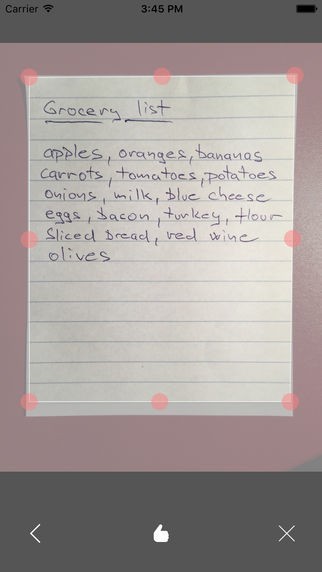 Carrier 3:45 PM
Grocery list
apples, oranges, bananas
carrots, tomatoes, potatoes
onions, milk, blue cheese
eggs, bacon, turkey, flour
Sliced bread, red wine
olives